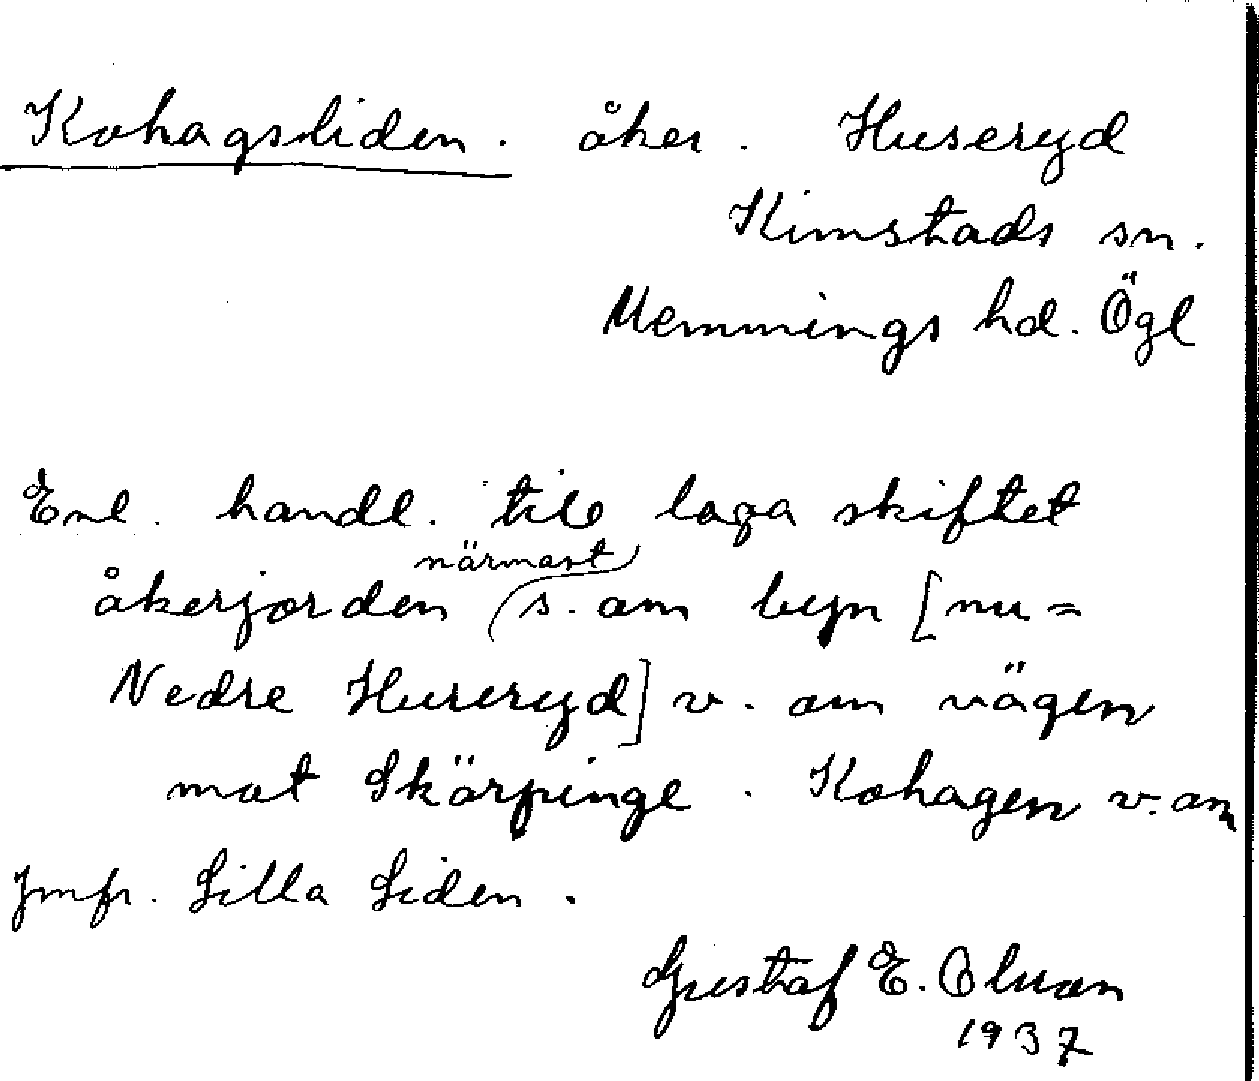 Kohagsliden. åker. Huseryd
Kimstads sn.
Memmings hd. Ögl
Enl. handl. till laga skiftet
åkerjorden närmast s. om byn [nu =
Nedre Huseryd] v. om vägen
mot Skörpinge. Kohagen v. om
Jmfr. Lilla Liden.
Gustaf E. Olson
1937